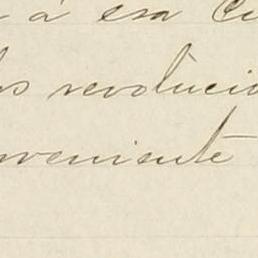 á esa
revolucio
veniente